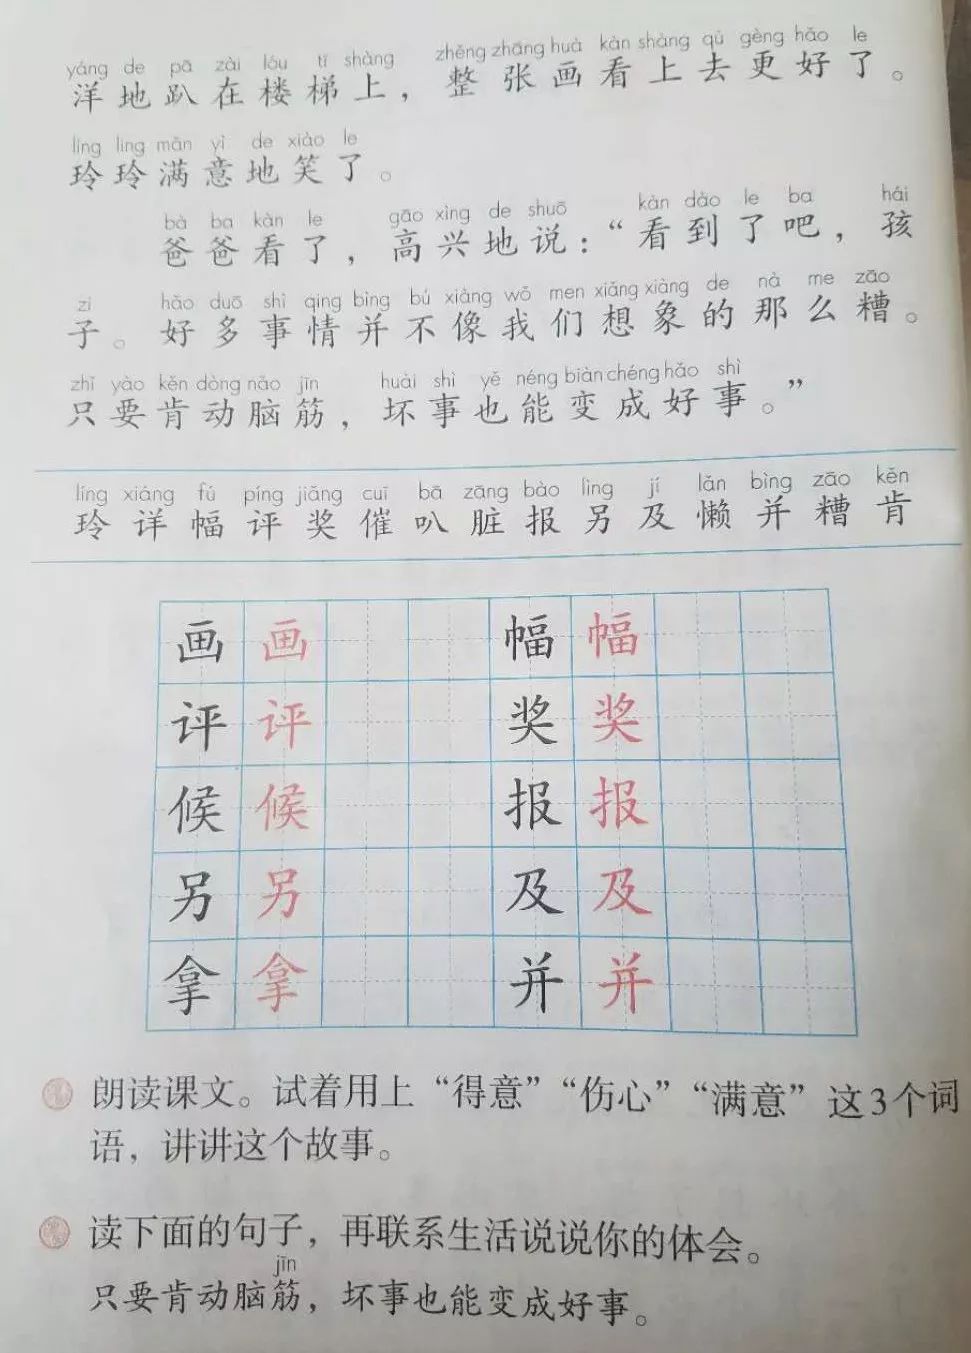 yáng de pā zài lóu tī shàng zhěng zhāng huà kàn shàng qù gèng hǎo le
洋地趴在楼梯上，整张画看上去更好了。
líng ling mǎn yì de xiào le
玲玲满意地笑了。
bà ba kàn le gāo xìng de shuō kàn dào le ba hái
爸爸看了，高兴地说：“看到了吧，孩
zi hǎo duō shì qing bìng bú xiàng wǒ men xiǎng xiàng de nà me zāo
子。好多事情并不像我们想象的那么糟。
zhǐ yào kěn dòng nǎo jīn huài shì yě néng biàn chéng hǎo shì
只要肯动脑筋，坏事也能变成好事。”
líng xiáng fú píng jiǎng cuī bā zāng bào lìng jí lǎn bìng zāo kěn
玲 详 幅 评 奖 催 叭 脏 报 另 及 懒 并 糟 肯
画 画 幅 幅
评 评 奖 奖
候 候 报 报
另 另 及 及
拿 拿 并 并
朗读课文。试着用上“得意”“伤心”“满意”这3个词
语，讲讲这个故事。
读下面的句子，再联系生活说说你的体会。
jīn
只要肯动脑筋，坏事也能变成好事。